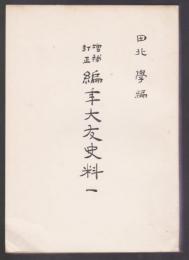 田北學編
増補
訂正
編年大友史料一